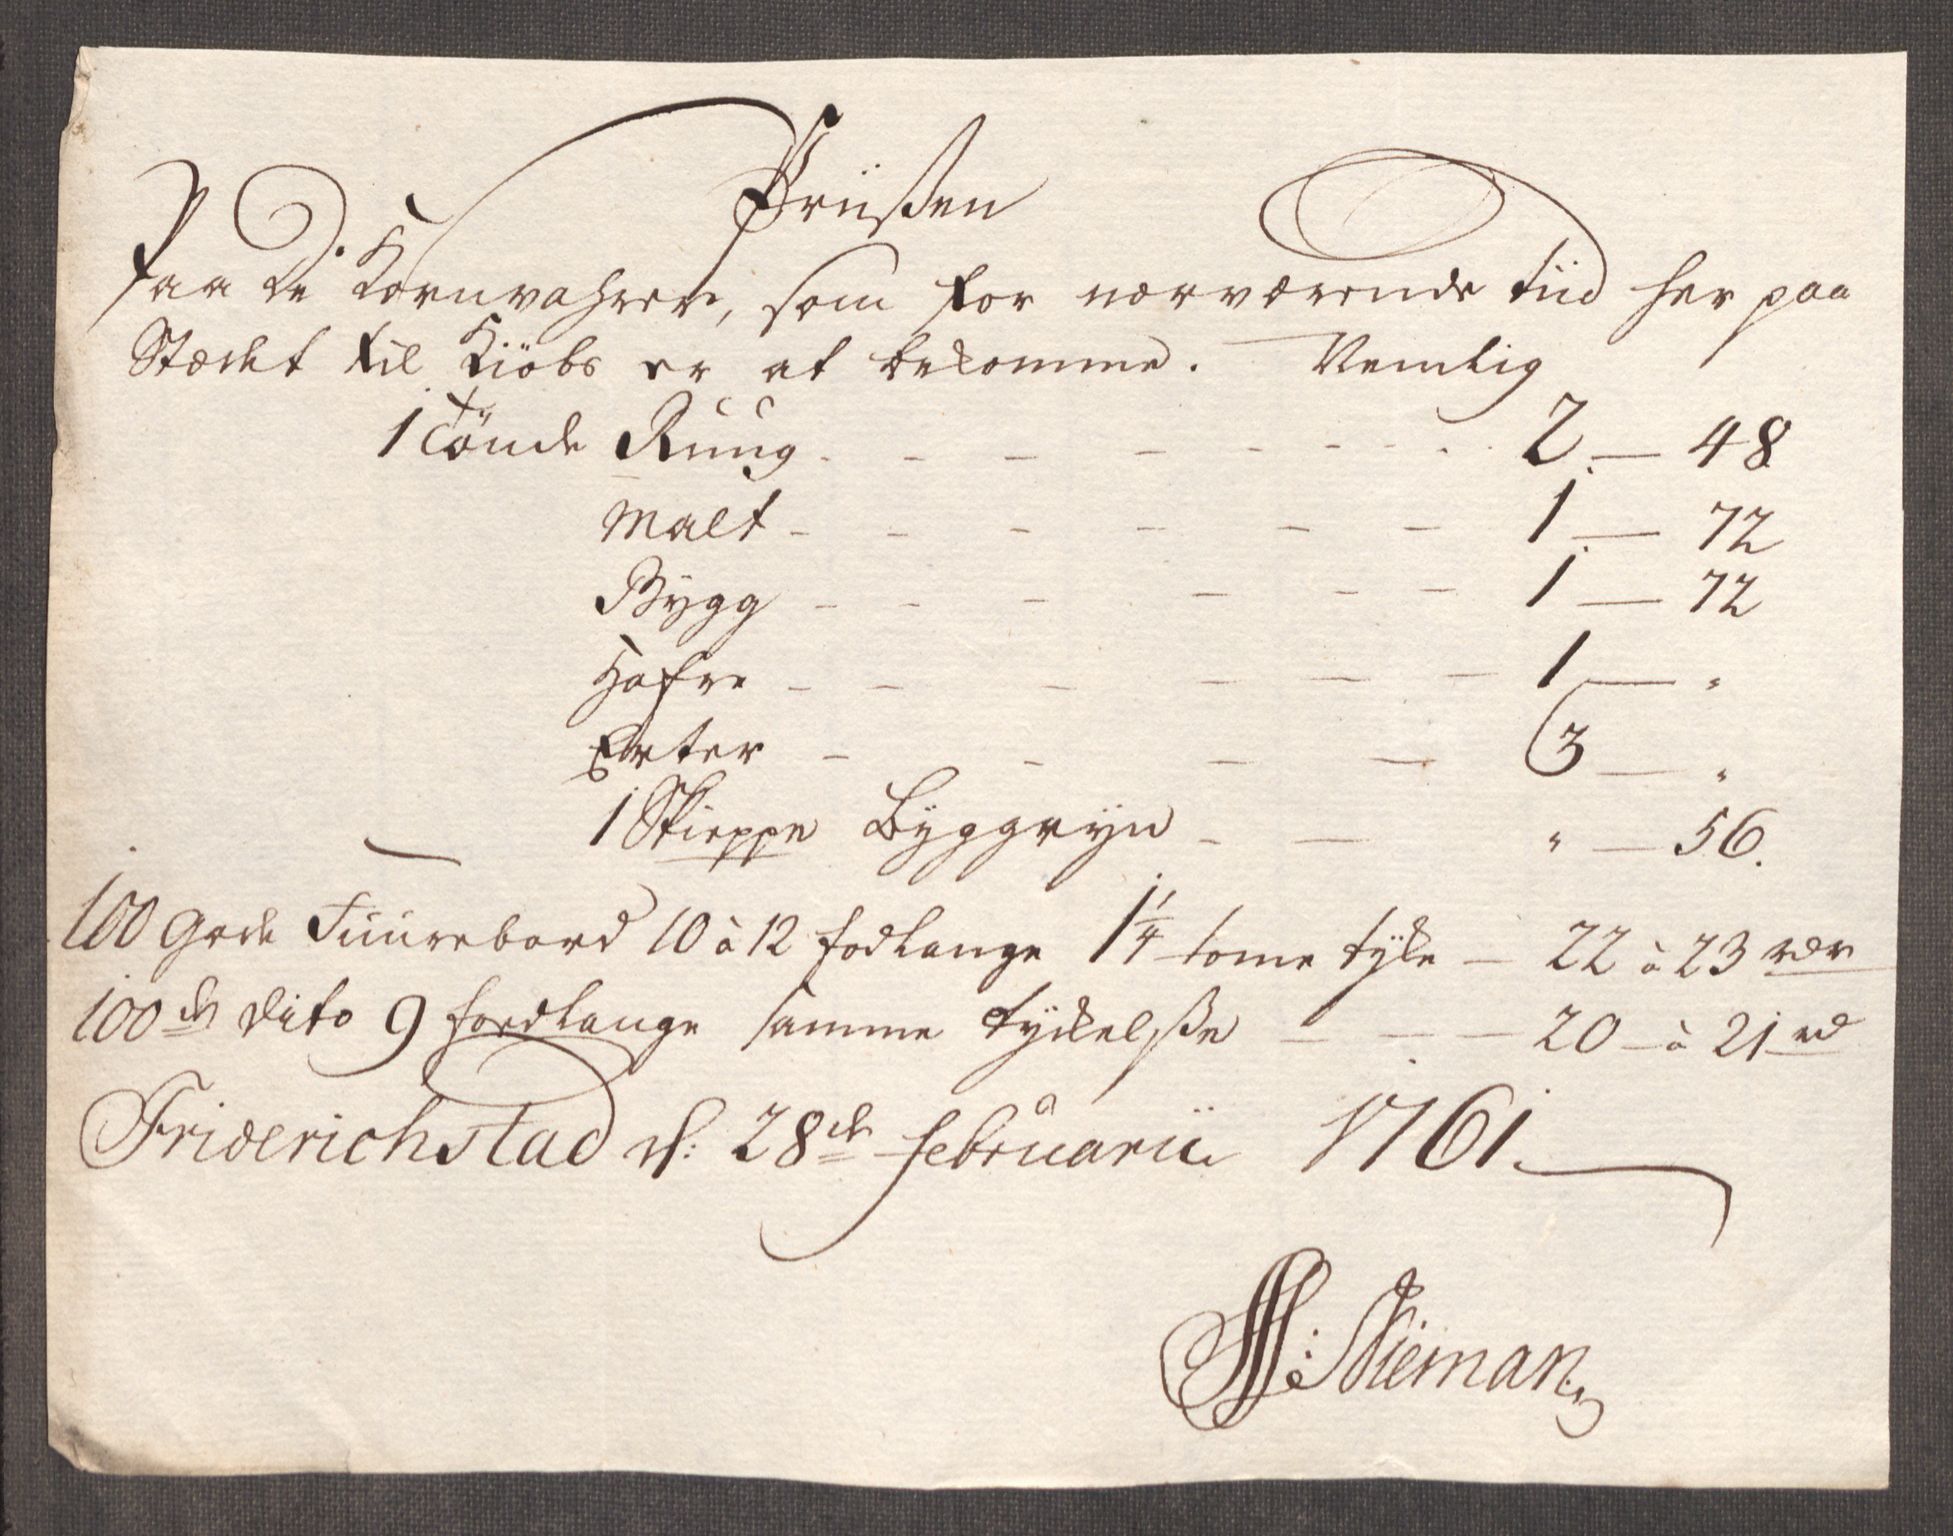 Priißen
Paa de Kornvahrer, som for nærværende tiid her paa
Stædet til Kiöbs er at bekomme. Nemlig
1 Tönde Rúúg - - - - - - 2 — 48
Malt - - - - - - 1 — 72
Bÿgg - - - - - - 1 — 72
Hafre - - - - - - 1 — "
Erter - - - - 3 — "
1 Skieppe Bÿggryn - - " — 56.
100 gode Fuurebord 10 à 12 fod lange 1 1/4 tome tÿke — 22 à 23 rdr
100de dito 9 foed lange samme tÿckelße - - - 20 — à 21 rd
Friderichstad d: 28de febrůarii 1761.
Nieman